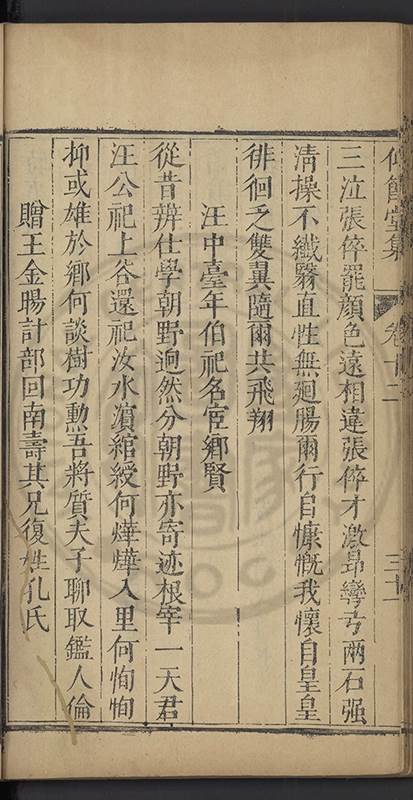 仰節堂集 卷十二 三十一
三泣張倅罷顏色遠相違張倅才激昻彎弓兩石强
淸操不纖翳直性無廻腸爾行自慷慨我懷自皇皇
徘徊乏雙翼隨爾共飛翔
汪中臺年伯祀名宦鄉賢
從昔辨仕學朝野逈然分朝野亦寄迹根宰一天君
汪公祀上谷還祀汝水濵綰綬何燁燁入里何恂恂
抑或雄於鄉何談樹功勲吾將質夫子聊取鑑人倫
贈王金暘計部回南壽其兄復姓孔氏